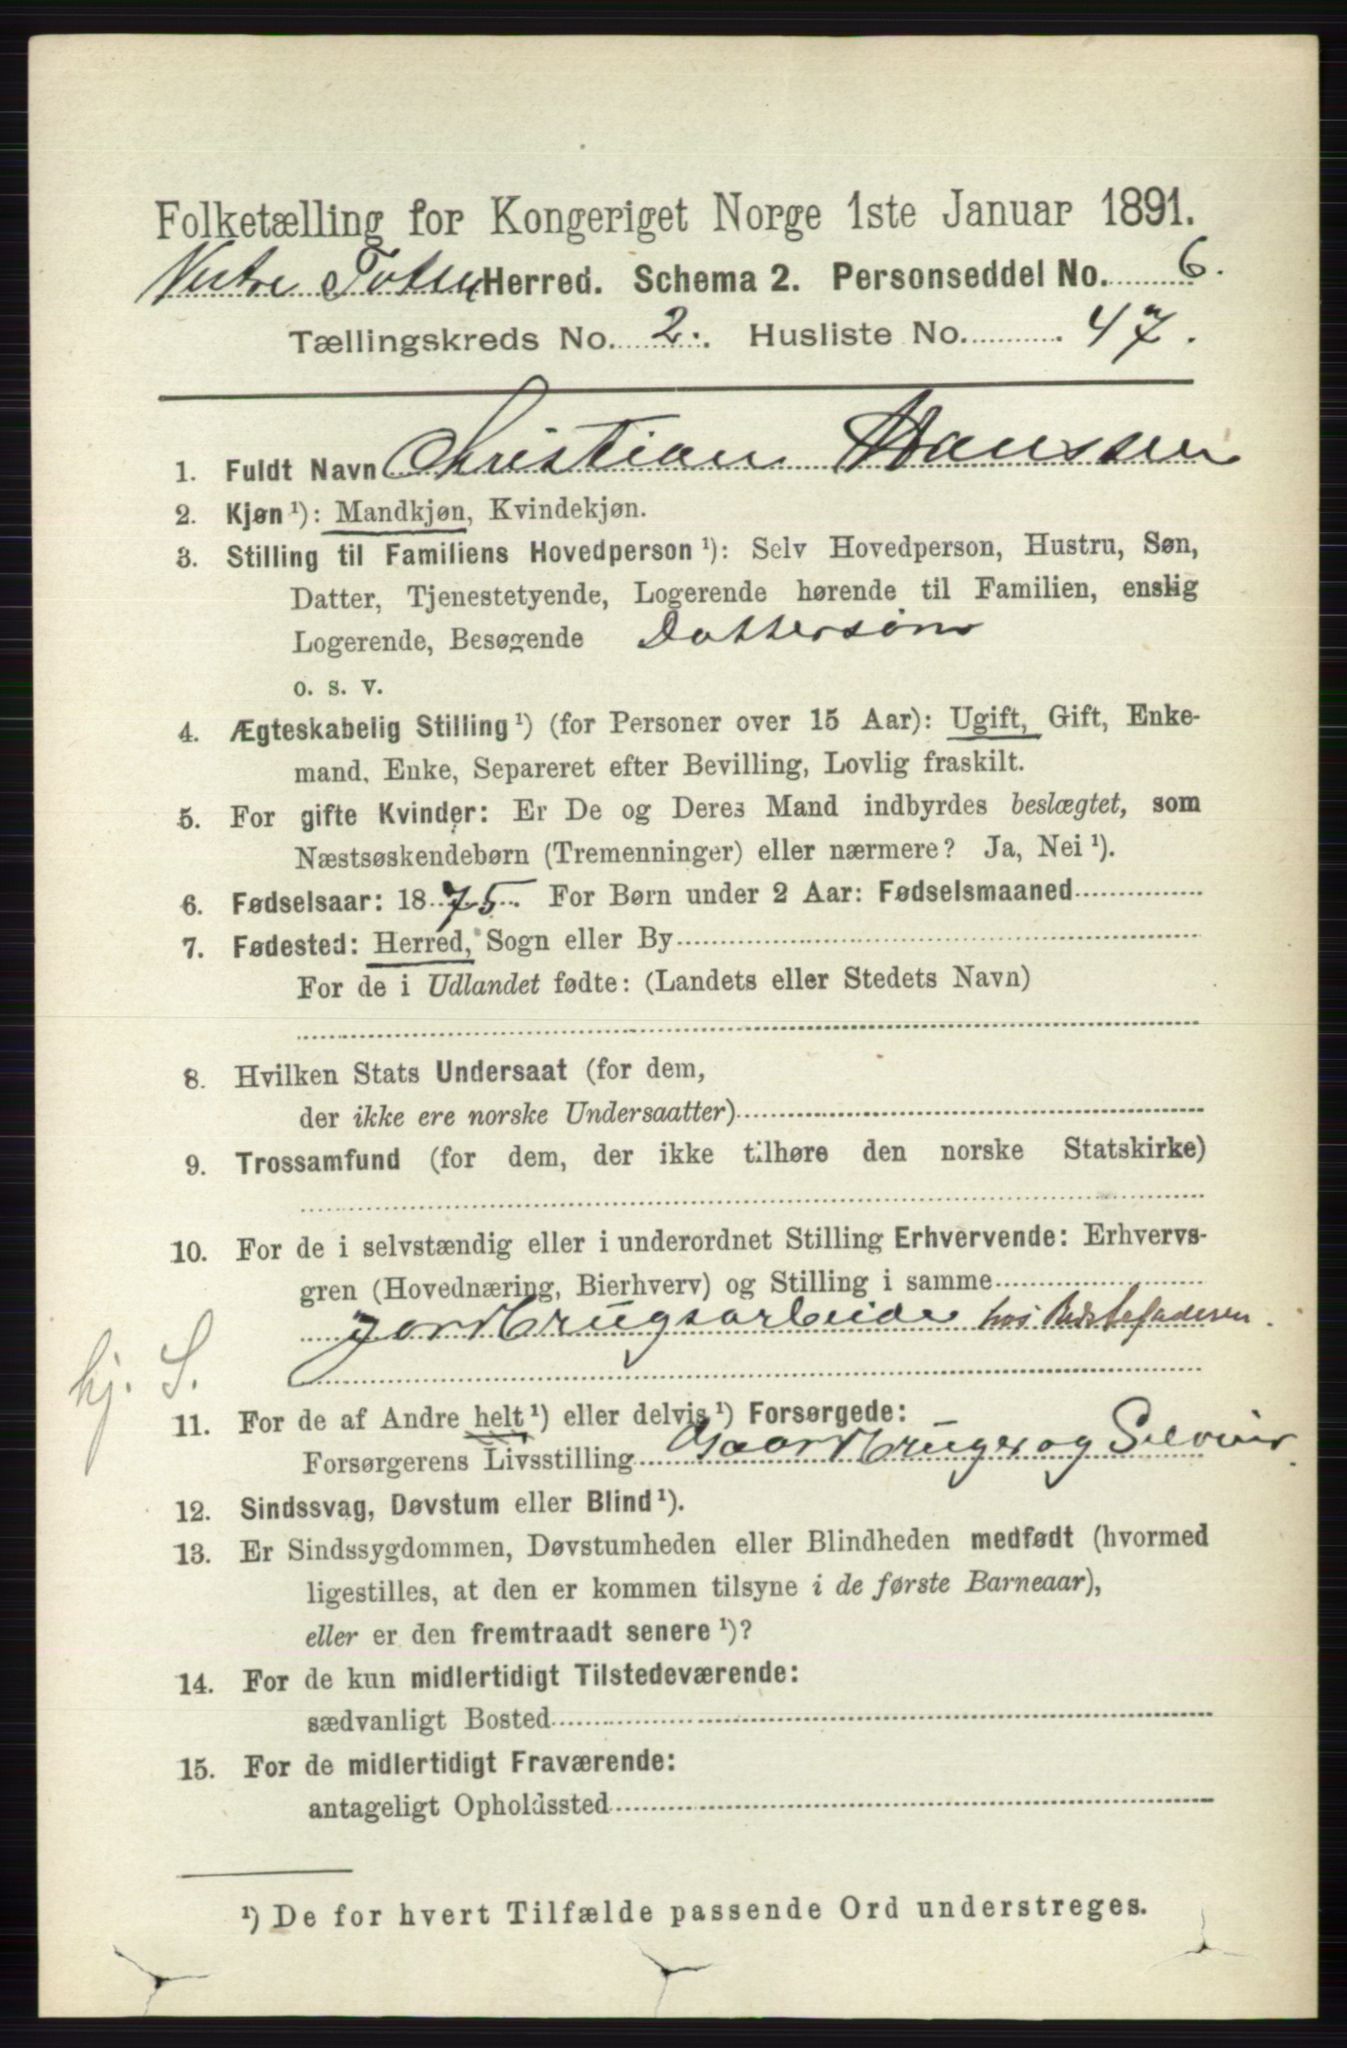 Folketælling for Kongeriget Norge 1ste Januar 1891.
Vestre Toten Herred. Schema 2. Personseddel No. 6.
Tællingskreds No. 2. Husliste No. 47.
1. Fuldt Navn Christian Hanssen
2. Kjøn ¹): Mandkjøn, Kvindekjøn.
3. Stilling til Familiens Hovedperson ¹): Selv Hovedperson, Hustru, Søn,
Datter, Tjenestetyende, Logerende hørende til Familien, enslig
Logerende, Besøgende Dattersøn
o. s. v.
4. Ægteskabelig Stilling ¹) (for Personer over 15 Aar): Ugift, Gift, Enke-
mand, Enke, Separeret efter Bevilling, Lovlig fraskilt.
5. For gifte Kvinder: Er De og Deres Mand indbyrdes beslægtet, som
Næstsøskendebørn (Tremenninger) eller nærmere? Ja, Nei ¹).
6. Fødselsaar: 1875. For Børn under 2 Aar: Fødselsmaaned
7. Fødested: Herred, Sogn eller By
For de i Udlandet fødte: (Landets eller Stedets Navn)
8. Hvilken Stats Undersaat (for dem,
der ikke ere norske Undersaatter)
9. Trossamfund (for dem, der ikke tilhøre den norske Statskirke)
10. For de i selvstændig eller i underordnet Stilling Erhvervende: Erhvervs-
gren (Hovednæring, Bierhverv) og Stilling i samme
Jordbrugsarbeide hos Bedstefaderen.
hj. S.
11. For de af Andre helt ¹) eller delvis ¹) Forsørgede:
Forsørgerens Livsstilling Gaardbruger og Selveier.
12. Sindssvag, Døvstum eller Blind ¹).
13. Er Sindssygdommen, Døvstumheden eller Blindheden medfødt (hvormed
ligestilles, at den er kommen tilsyne i de første Barneaar),
eller er den fremtraadt senere ¹)?
14. For de kun midlertidigt Tilstedeværende:
sædvanligt Bosted
15. For de midlertidigt Fraværende:
antageligt Opholdssted
¹) De for hvert Tilfælde passende Ord understreges.